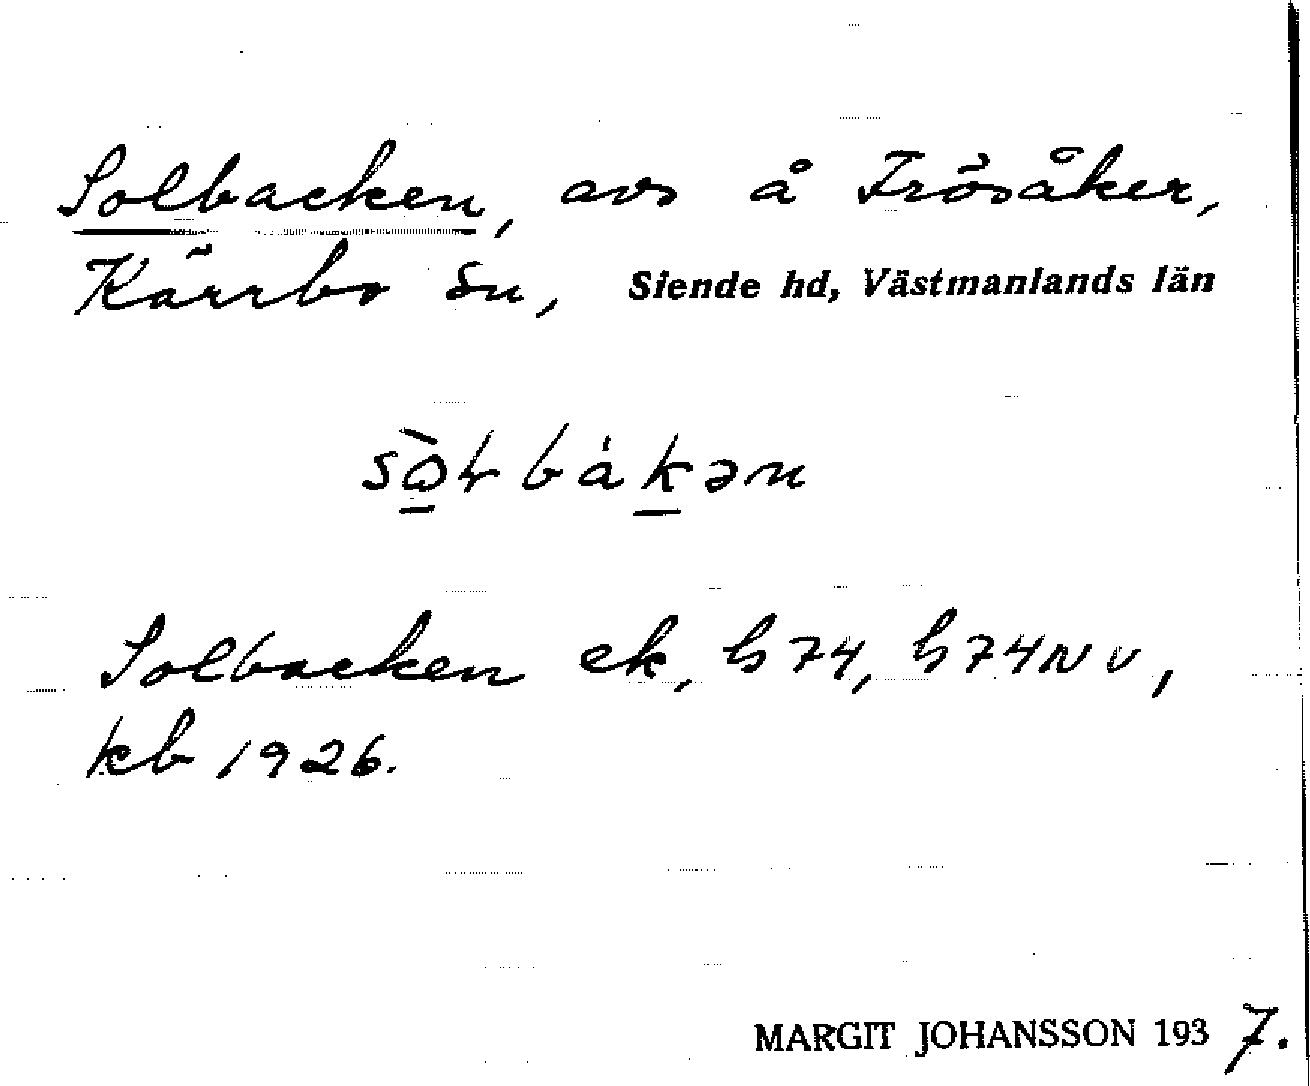 Solbacken, avs å Frösåker,
Kärrbo sn, Siende hd, Västmanlands län
Solbacken ek, h 74, h 74 NV,
kb 1926.
MARGIT JOHANSSON 1937.